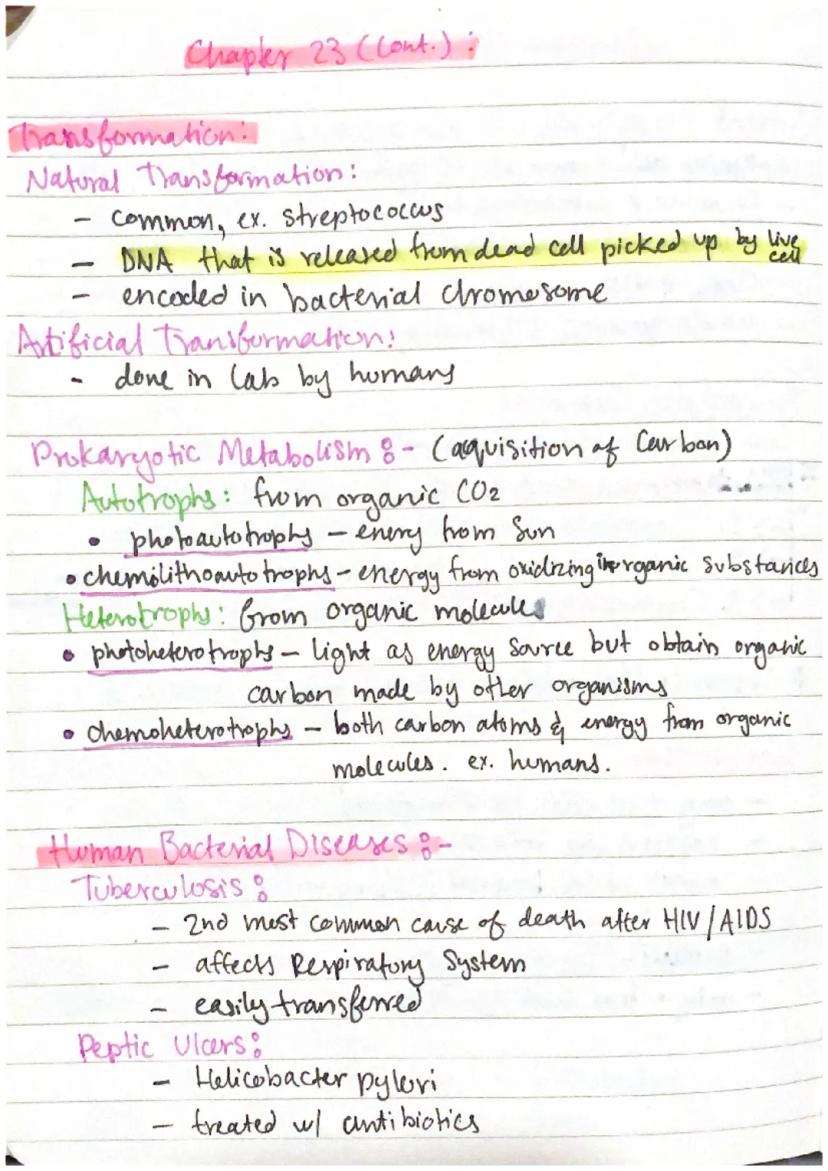 Chapter 23 (Cont.) :
Transformation:
Natural Transformation:
- common, ex. streptococcus
- DNA that is released from dead cell picked up by live cell
- encoded in bacterial chromosome
Artificial Transformation:
- done in lab by humans
Prokaryotic Metabolism :- (aquisition of Carbon)
Autotrophs: from organic CO2
• photoautotrophs - enery from Sun
• chemolithoautotrophs - energy from oxidizing inorganic substances
Heterotrophs: from organic molecules
• photoheterotrophs - light as energy source but obtain organic
carbon made by other organisms
• chemoheterotrophs - both carbon atoms & energy from organic
molecules. ex. humans.
Human Bacterial Diseases :-
Tuberculosis :
- 2nd most common cause of death after HIV/AIDS
- affects Respiratory System
- easily transferred
Peptic Ulcers:
- Helicobacter pylori
- treated w/ antibiotics